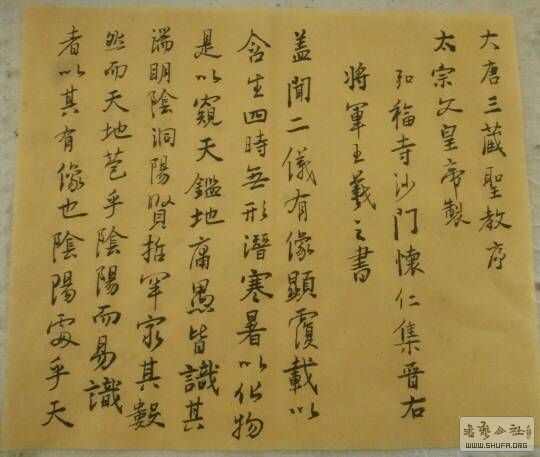 大唐三藏聖教序
太宗文皇帝製
弘福寺沙門懷仁集晉右
將軍王羲之書
蓋聞二儀有像顯覆載以
含生四時無形潛寒暑以化物
是以窺天鑑地庸愚皆識其
端明陰洞陽賢哲罕窮其數
然而天地苞乎陰陽而易識
者以其有像也陰陽處乎天
WWW.SHUFA.ORG